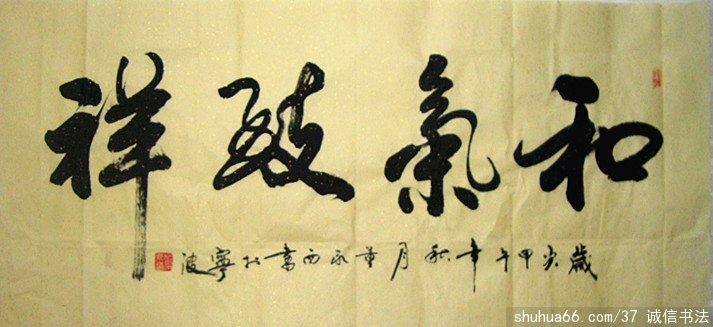 和氣致祥
歲次甲午年秋月董永西書於寧波
shuhua66.com/37 诚信书法